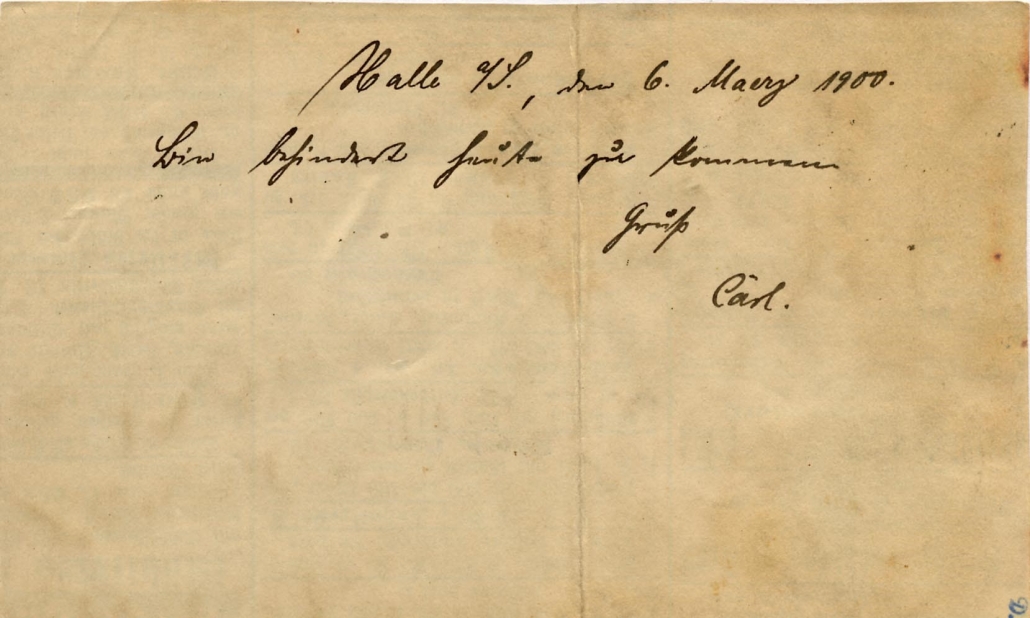 Halle a/S., den 6. Maerz 1900.
Bin behindert heute zu kommen
Gruß
Carl.